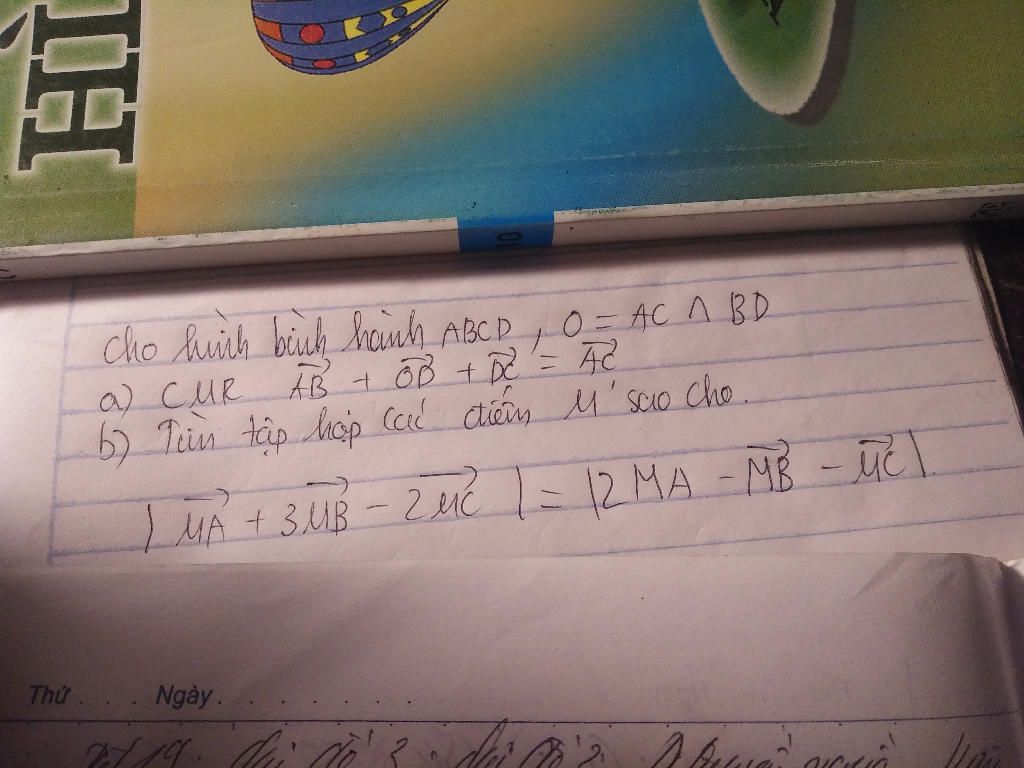 10
Cho hình bình hành ABCD, O = AC ∩ BD
a) CMR \overrightarrow{AB} + \overrightarrow{OB} + \overrightarrow{DC} = \overrightarrow{AC}
b) Tìm tập hợp các điểm M sao cho.
| \overrightarrow{MA} + 3\overrightarrow{MB} - 2\overrightarrow{MC} | = |2MA - \overrightarrow{MB} - \overrightarrow{MC}|.
Thứ . . . Ngày . . . . . . . .